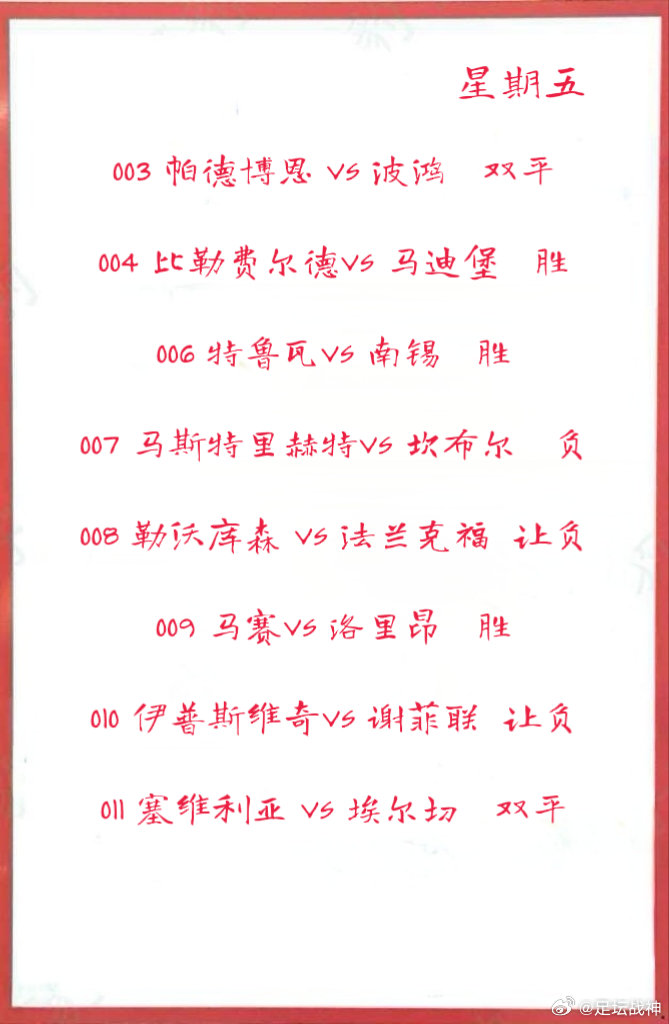 星期五
003 帕德博恩 VS 波鸿 双平
004 比勒费尔德VS 马迪堡 胜
006 特鲁瓦VS 南锡 胜
007 马斯特里赫特VS 坎布尔 负
008 勒沃库森 VS 法兰克福 让负
009 马赛VS 洛里昂 胜
010 伊普斯维奇VS 谢菲联 让负
011 塞维利亚 VS 埃尔切 双平
@足坛战神